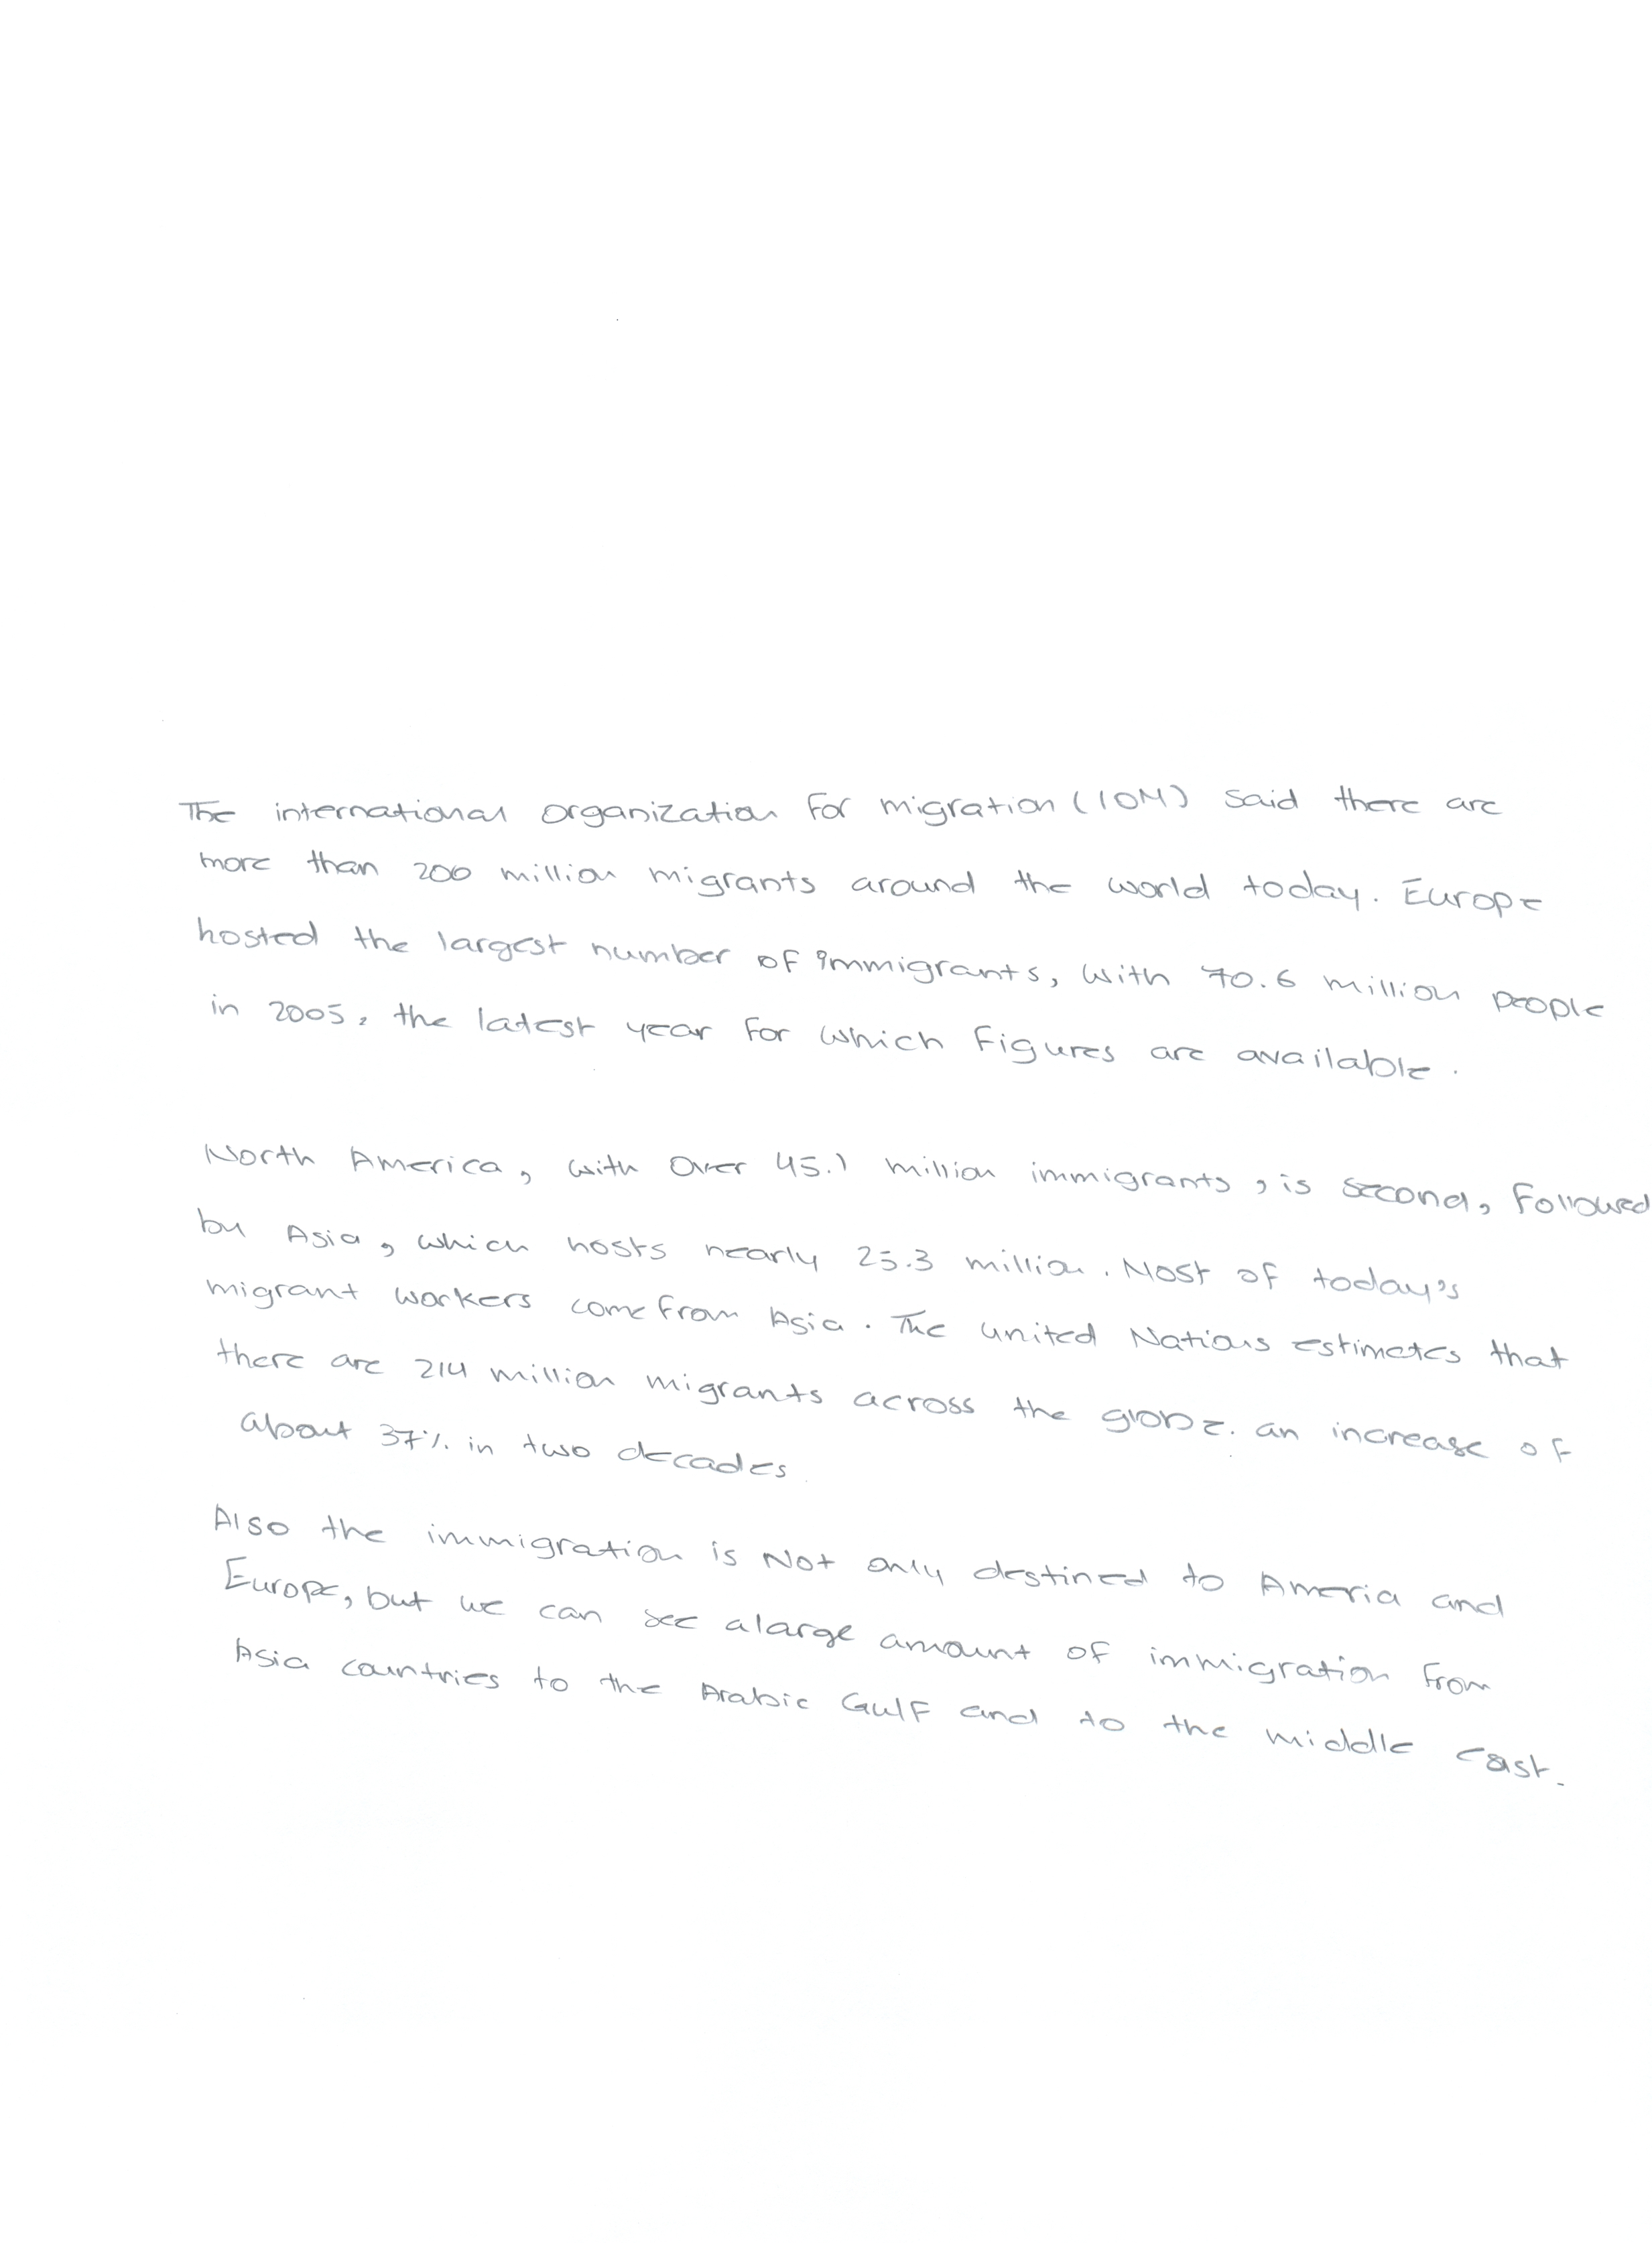 The international organization for migration (IOM) said there are
more than 200 million migrants around the world today. Europe
hosted the largest number of immigrants, with 70.6 million people
in 2005, the latest year for which figures are available.
North America, with over 45.1 million immigrants, is second, followed
by Asia, which hosts nearly 25.3 million. Most of today's
migrant workers come from Asia. The united Nations estimates that
there are 214 million migrants across the globe. an increase of
about 37% in two decades.
Also the immigration is Not only destined to Ameria and
Europe, but we can see alarge amount of immigration from
Asia countries to the Arabic Gulf and to the middle east.